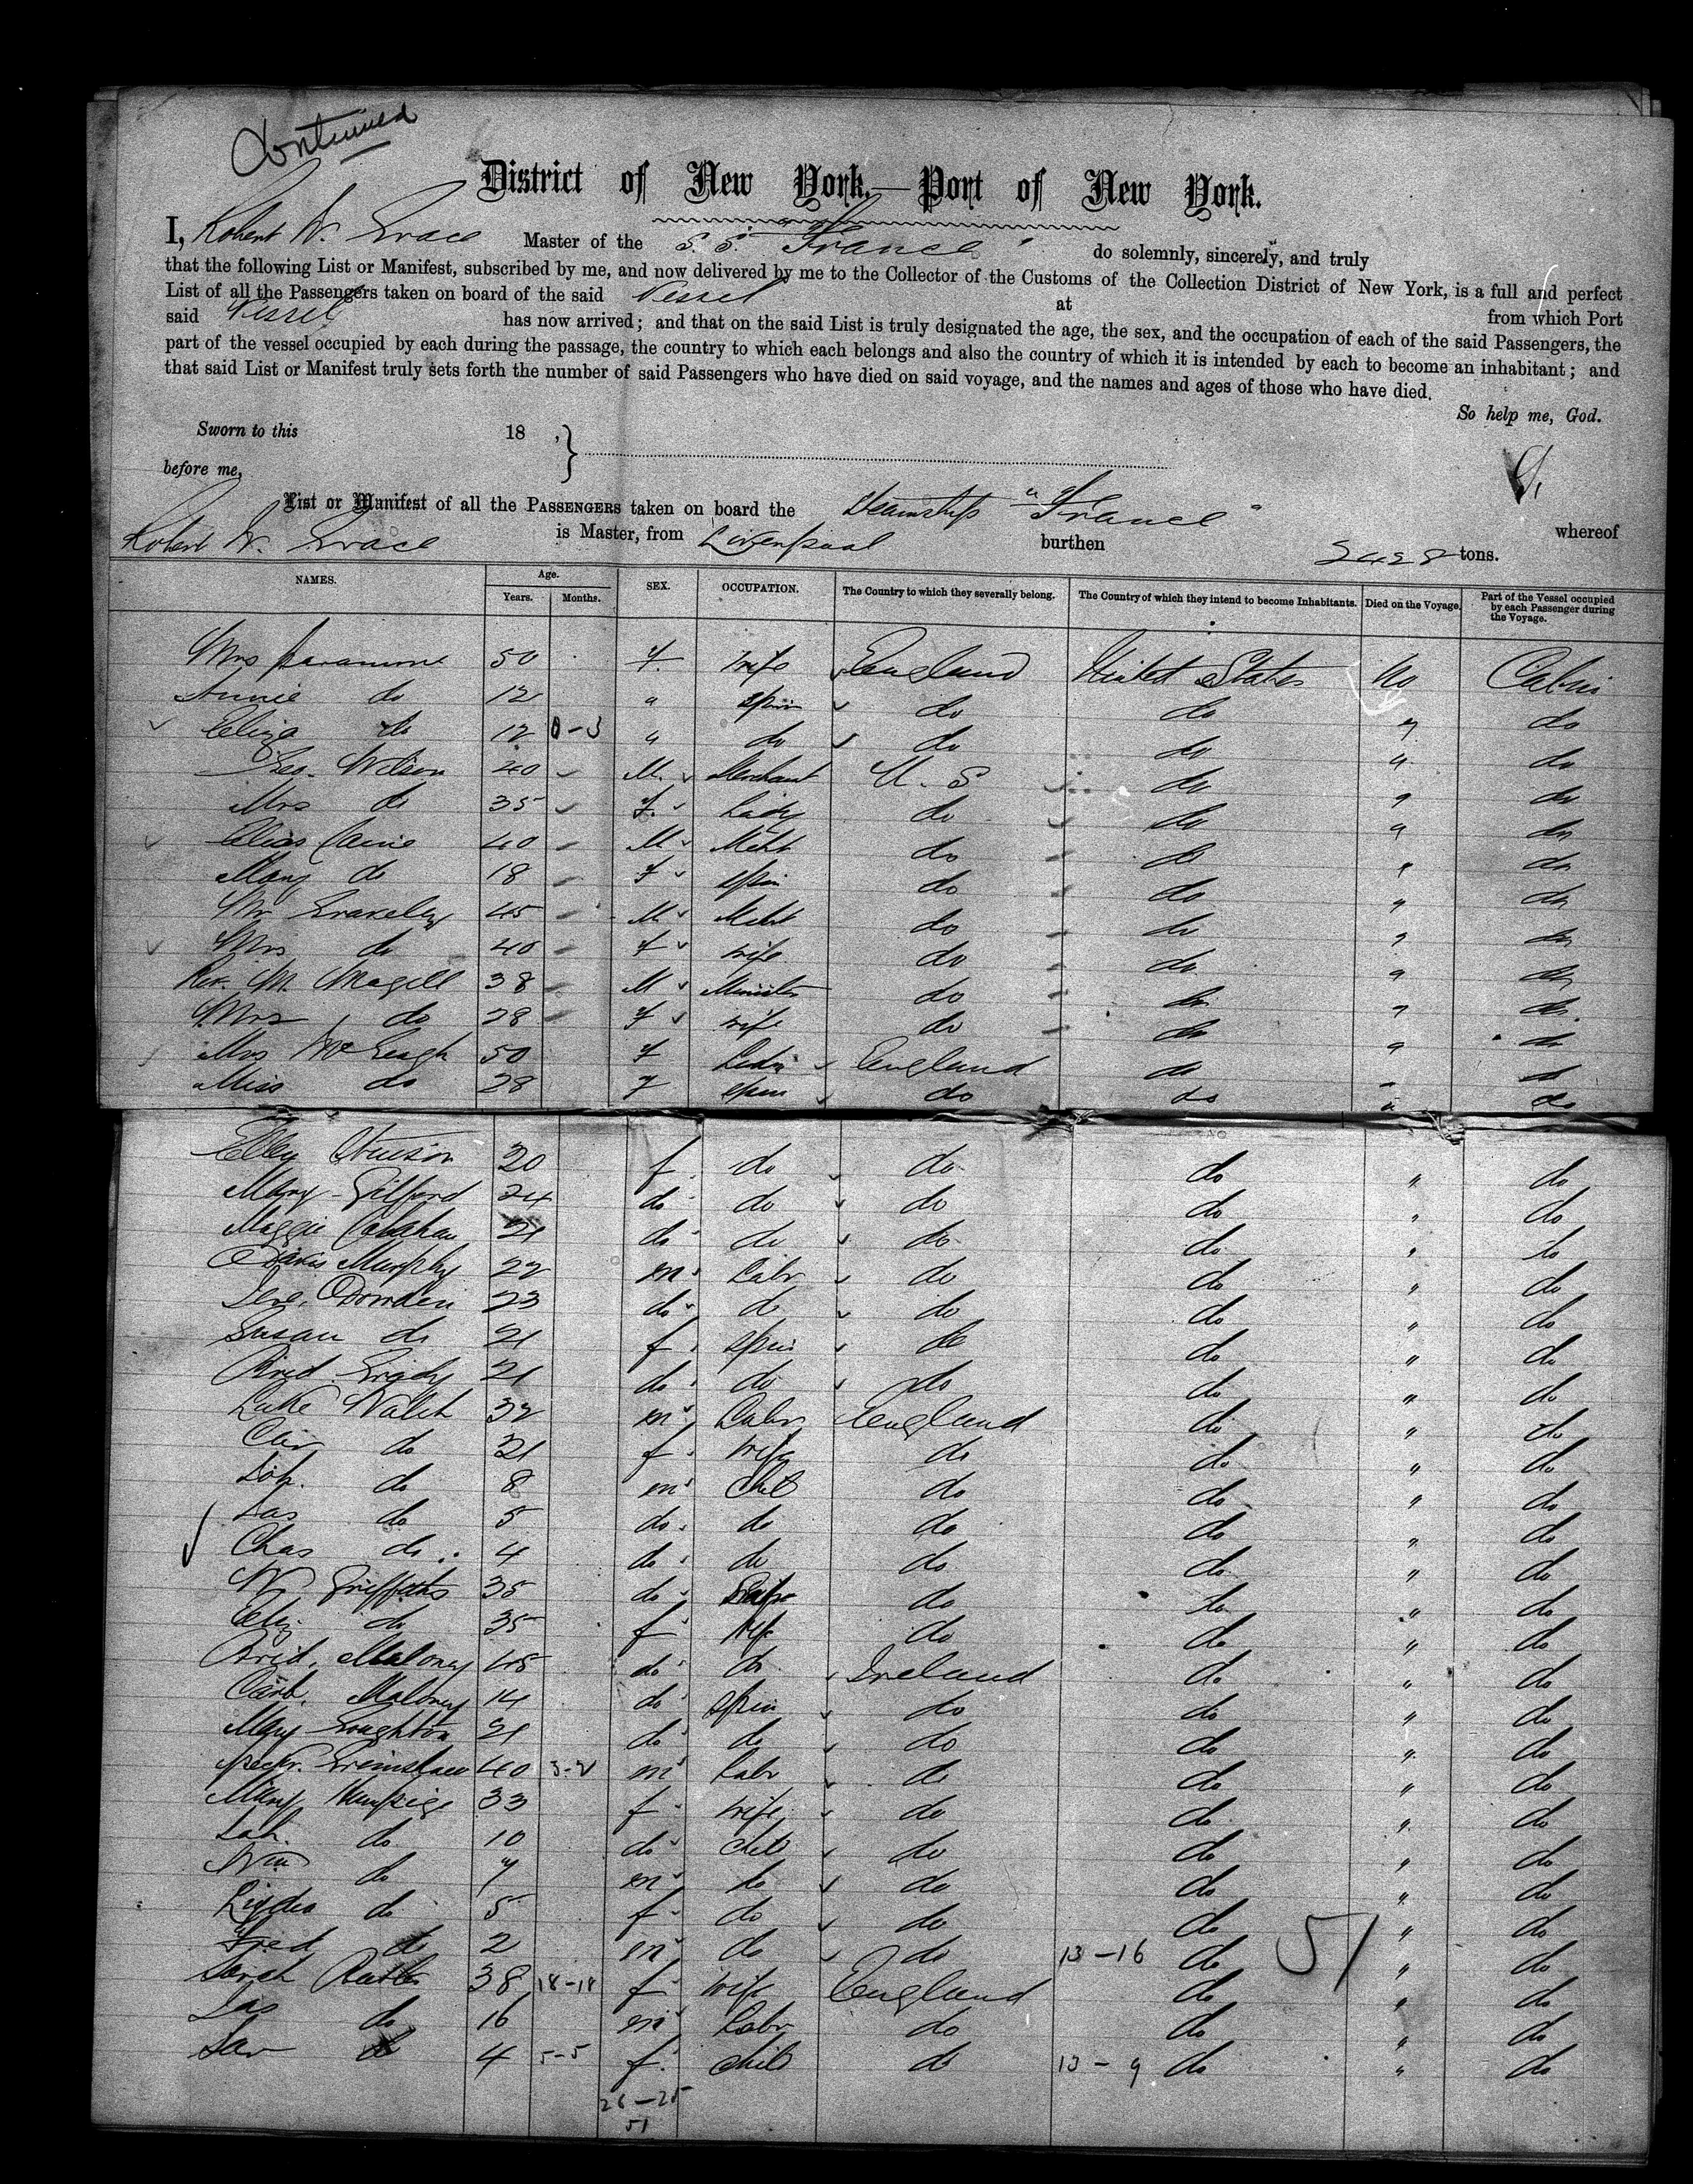 Continued
District of New York.—Port of New York.
I, Robert W. Grace Master of the S.S. "France" do solemnly, sincerely, and truly
that the following List or Manifest, subscribed by me, and now delivered by me to the Collector of the Customs of the Collection District of New York, is a full and perfect
List of all the Passengers taken on board of the said Vessel at from which Port
said Vessel has now arrived; and that on the said List is truly designated the age, the sex, and the occupation of each of the said Passengers, the
part of the vessel occupied by each during the passage, the country to which each belongs and also the country of which it is intended by each to become an inhabitant; and
that said List or Manifest truly sets forth the number of said Passengers who have died on said voyage, and the names and ages of those who have died.
So help me, God.
Sworn to this 18 ,
before me,
List or Manifest of all the PASSENGERS taken on board the Steamship "France" whereof
Robert W. Grace is Master, from Liverpool burthen 2428 tons.
NAMES. Age. Years. Months. SEX. OCCUPATION. The Country to which they severally belong. The Country of which they intend to become Inhabitants. Died on the Voyage. Part of the Vessel occupied by each Passenger during the Voyage.
Mrs 50 F. wife England United States No Cabin
Annie do 12 " spin do do " do
Eliza do 12 0-3 " do do do " do
Geo. Wilson 40 M. Merchant U. S do " do
Mrs do 35 F. Lady do do " do
40 M Mcht do do " do
Mary do 18 F spin do do " do
Mr Grakeley 45 M Mcht do do " do
Mrs do 40 F wife do do " do
Rev. M. Magill 38 M Minister do do " do
Mrs do 28 F wife do do " do
Mrs McGeagh 50 F England do " do
Miss do 28 F spin do do " do
20 f do do do " do
Mary Gilford 24 do do do do " do
Maggie Calahan 21 do do do do " do
Murphy 22 m Labr do do " do
23 do do do do " do
Susan do 21 f spin do do " do
Brid. Grady 21 do do do do " do
Luke Walsh 32 m Labr England do " do
do 31 f wife do do " do
do 8 m Chil do do " do
Jas do 5 do do do do " do
Chas do 4 do do do do " do
W Griffiths 35 do do do " do
Eliz do 35 f wife do do " do
Brid. Maloney 48 do do Ireland do " do
Cath. Maloney 14 do spin do do " do
Mary Loughton 21 do do do do " do
Grimshaw 40 3-2 m Labr do do " do
Mary 33 f wife do do " do
do 10 do chil do do " do
Wm do 7 m do do do " do
do 5 f do do do " do
Fred do 2 m do do 13-16 do 51 " do
Sarah 38 18-18 f wife England do " do
Jas do 16 m Labr do do " do
Sar do 4 5-5 f chil do 13-9 do " do
26-25
51